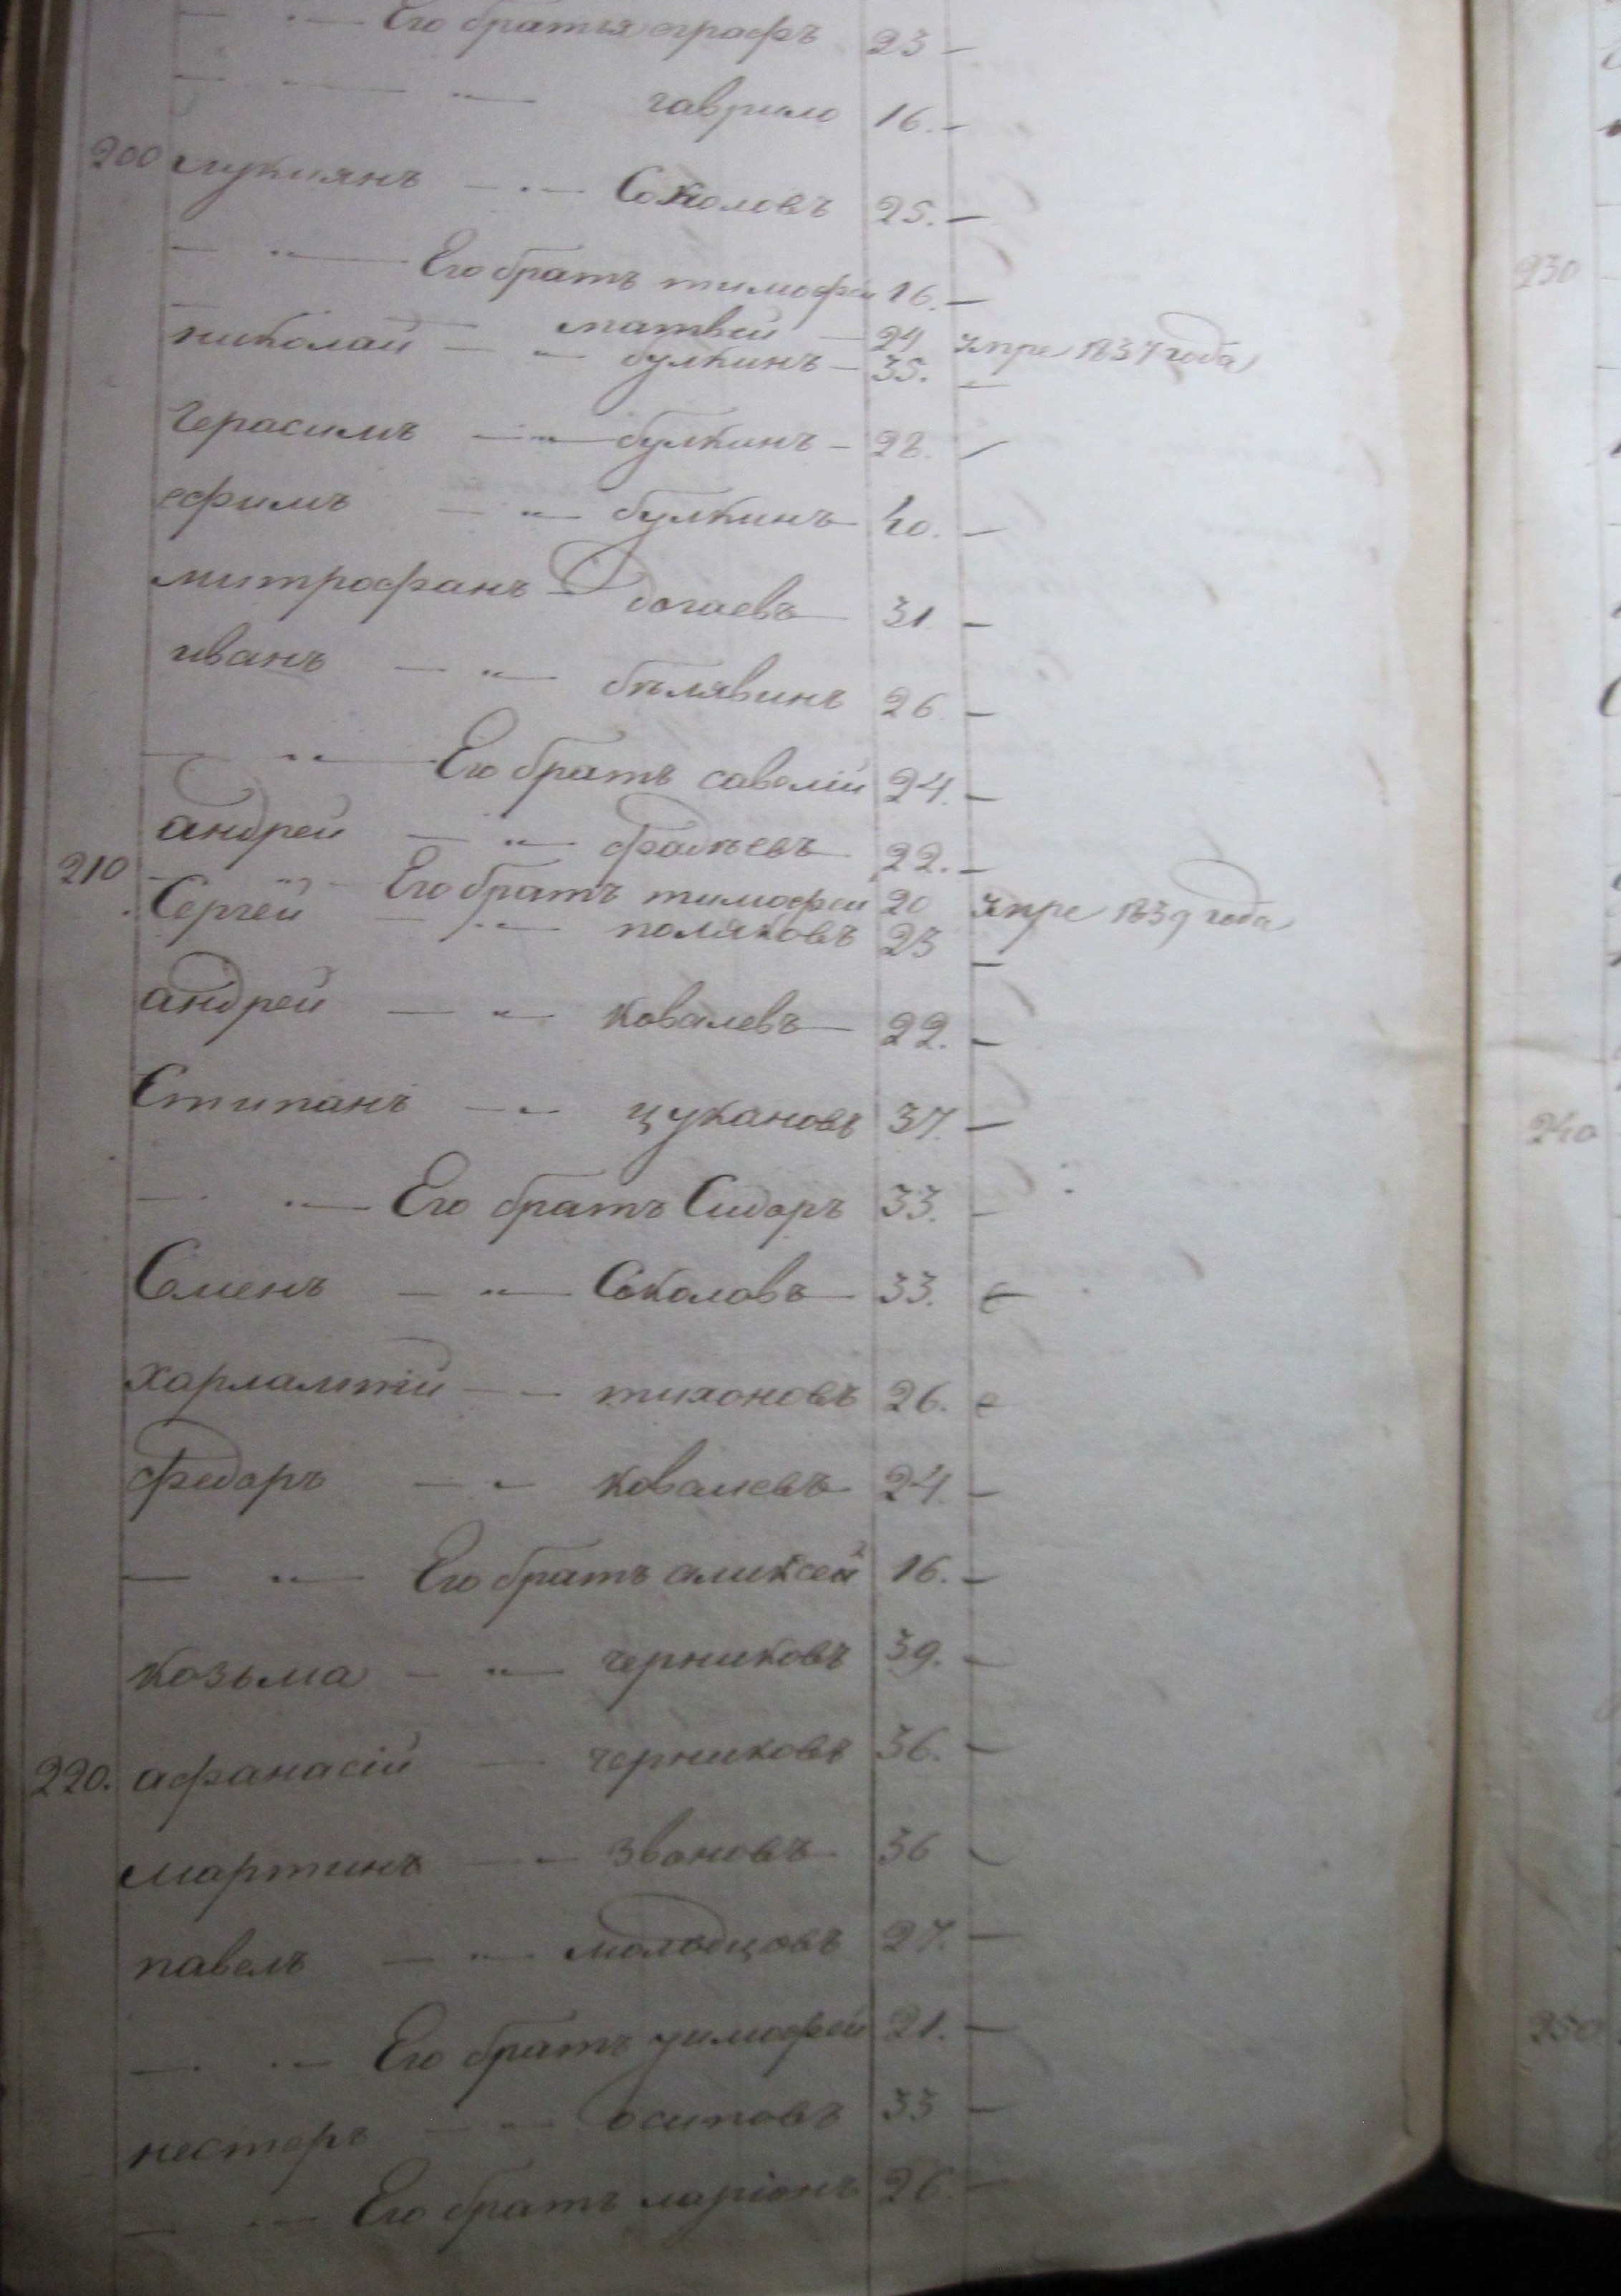 Его братья ографъ 23 —
гаврило 16. —
200 лукиянъ — Соколовъ 25. —
Его братъ тимофеи 16. —
матвеи — 24 умре 1837 года
николаи — булкинъ — 35. —
Герасимъ — булкинъ — 28. —
ефимъ — булкинъ 40. —
митрофанъ — догаевъ 31 —
иванъ — бѣлявинъ 26 —
Его братъ савелiи 24. —
андреи — фадѣевъ 22. —
210 Его братъ тимофеи 20 умре 1839 года
Сергеи — поляковъ 23 —
андреи — ковалевъ 22. —
Стипанъ — цукановъ 37. —
Его братъ Сидоръ 33. —
Семенъ — Соколовъ 33. —
харлампiи — тихоновъ 26.
федоръ — ковалевъ 24 —
Его братъ аликсеи 16. —
козьма — черниковъ 39. —
220. афанасiи — черниковъ 36. —
мартинъ — звоновъ 36
павелъ — молодцовъ 27. —
Его братъ тимофеи 21. —
нестеръ — осиповъ 33 —
Его братъ ларiонъ 26 —
230
240
250